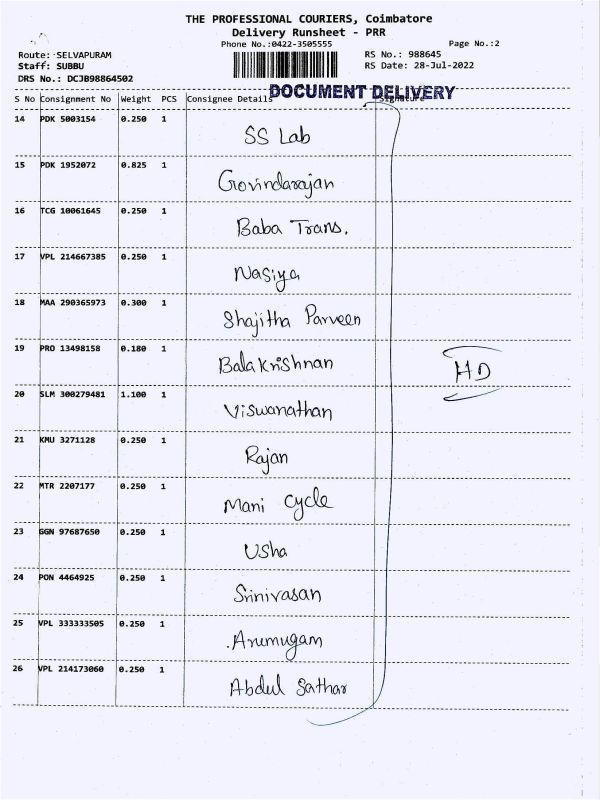 THE PROFESSIONAL COURIERS, Coimbatore
Delivery Runsheet - PRR
Phone No.:0422-3505555 Page No.:2
Route: SELVAPURAM RS No.: 988645
Staff: SUBBU RS Date: 28-Jul-2022
DRS No.: DCJB98864502
DOCUMENT DELIVERY
S No Consignment No Weight PCS Consignee Details Signature
14 PDK 5003154 0.250 1 SS Lab
15 PDK 1952072 0.825 1 Govindarajan
16 TCG 10061645 0.250 1 Baba Trans.
17 VPL 214667385 0.250 1 Nasiya
18 MAA 290365973 0.300 1 Shajitha Parveen
19 PRO 13498158 0.180 1 Balakrishnan
HD
20 SLM 300279481 1.100 1 Viswanathan
21 KMU 3271128 0.250 1 Rajan
22 MTR 2207177 0.250 1 Mani Cycle
23 GGN 97687650 0.250 1 Usha
24 PON 4464925 0.250 1 Srinivasan
25 VPL 333333505 0.250 1 Arumugam
26 VPL 214173060 0.250 1 Abdul Sathar